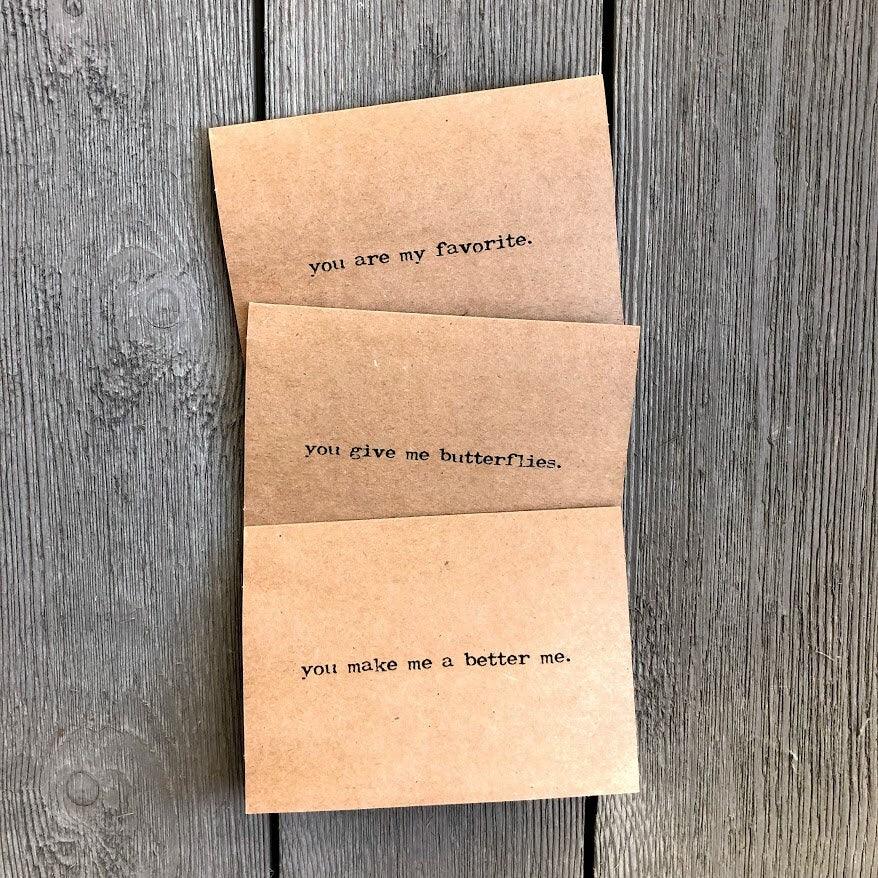 you are my favorite.
you give me butterflies.
you make me a better me.